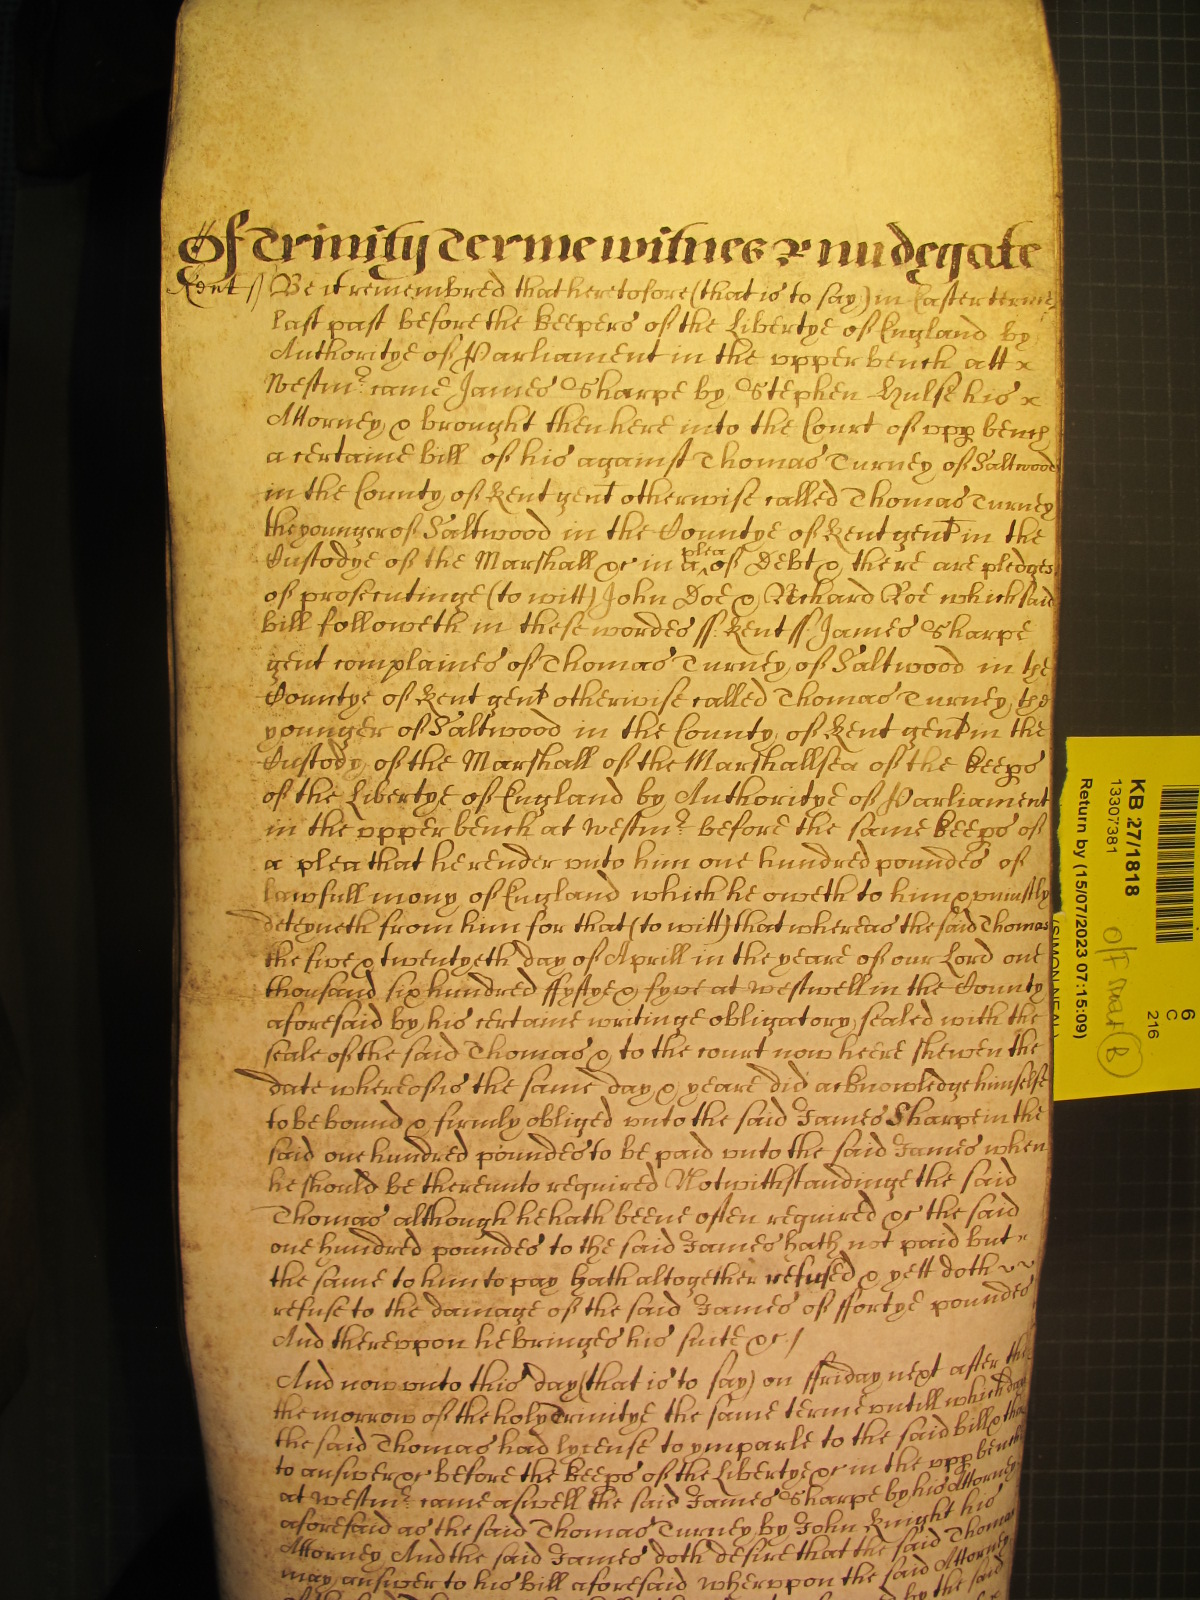 Of Trinity Terme witnes R Nudegate
Kent ss Be it remembred that heretofore (that is to say) in Easter terme
last past before the Keepers of the Libertye of England by
Authoritye of Parliament in the vpper bench att x
Westmr came James Sharpe by Stephen Hulse his x
Attorney & brought then here into the Court of vpp bench
a certaine bill of his against Thomas Turney of Saltwood
in the County of Kent gent otherwise called Thomas Turney
the younger of Saltwood in the Countye of Kent gent in the
Custodye of the Marshall &c in a plea of Debt & there are pledges
of prosecutinge (to witt) John Doe & Richard Roe which said
bill followeth in these wordes ss. Kent ss. James Sharpe
gent complaines of Thomas Turney of Saltwood in the
Countye of Kent gent otherwise called Thomas Turney the
younger of Saltwood in the County of Kent gent in the
Custody of the Marshall of the Marshallsea of the Keeps
of the Libertye of England by Authoritye of Parliament
in the vpper bench at Westmr before the same Keeps of
a plea that he render vnto him one hundred poundes of
lawfull mony of England which he oweth to him & vniustly
deteyneth from him for that (to witt) that whereas the said Thomas
the five & twentyeth day of Aprill in the yeare of our Lord one
thousand six hundred ffyftye & fyve at Westwell in the County
aforesaid by his certaine writinge obligatory sealed with the
seale of the said Thomas & to the court now heere shewen the
date whereof is the same day & yeare did acknowledge himselfe
to be bound & firmly obliged vnto the said James Sharpe in the
said one hundred poundes to be paid vnto the said James when
he should be therevnto required Notwithstandinge the said
Thomas although he hath beene often required &c the said
one hundred poundes to the said James hath not paid but
the same to him to pay hath altogether refused & yett doth
refuse to the damage of the said James of ffortye poundes
And therevpon he bringes his suite &c /
And now vnto this day (that is to say) on ffriday next after the
the morrow of the holy Trinitye the same terme vntill which day
the said Thomas had lycense to ymparle to the said bill & then
to answer &c before the Keeps of the Libertye &c in the vpp bench
at Westmr came aswell the said James Sharpe by his Attorney
aforesaid as the said Thomas Turney by John Knight his
Attorney And the said James doth desire that the said Thomas
may answer to his bill aforesaid wherevpon the said Attorney
by the said
KB 27/1818
13307381
Return by (15/07/2023 07:15:09)
(SIMON NEAL)
6
C
216